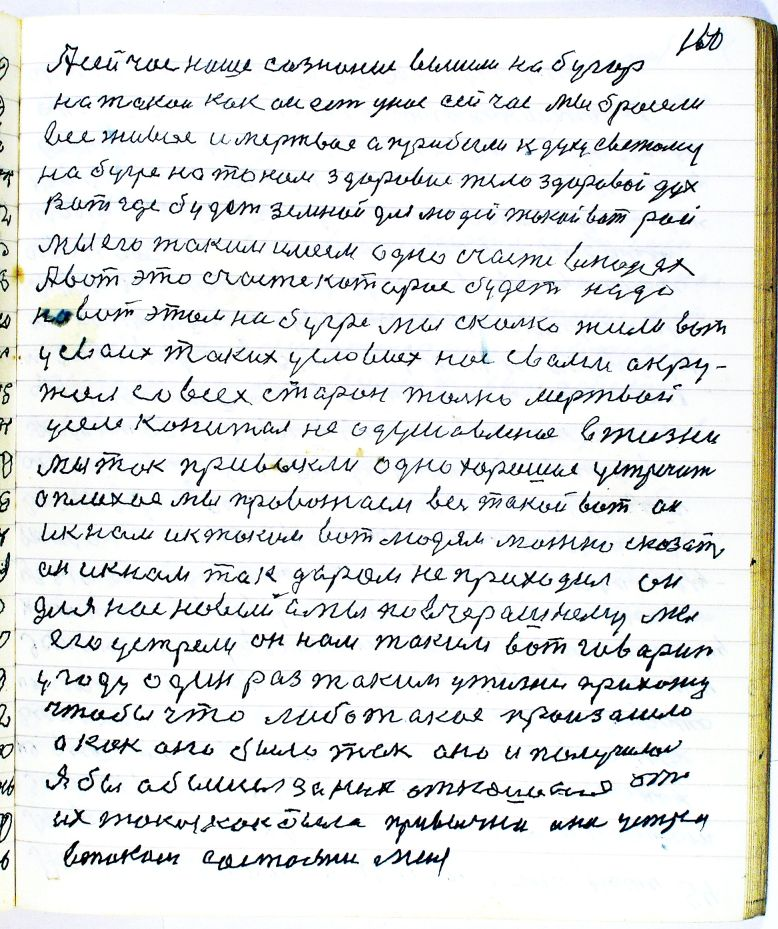 160
А сейчас наще сознание велили на бугор
на такой как он ест у нас сейчас мы бросели
все живое и мертвое а прибыли к духу светому
на бугре на таком здоровие тело здоровой дух
Вот где будет земной для людей такой вот рай
мы его таким имеем одно счасте в людях
А вот это счасте которое будет надо
на вот этом на бугре мы сколко жили вот
у своих таких условиех нас свами окру-
жал со всех старон толко мертвой
капитал не одушевленое в жизни
мы так привыкли одно хорошое устречат
а плохое мы провожаем вет такой вот он
и к нам и к таким вот людям можно сказат
он и к нам так даром не приходил он
для нас новый а мы по вчерашнему мы
его устрели он нам таким вот говарит
у году один раз таким у жизни прихожу
чтобы что либо такое произашло
а как оно было так оно и получилос
Я бы
их такая как была привычка она
в таком состояни меня